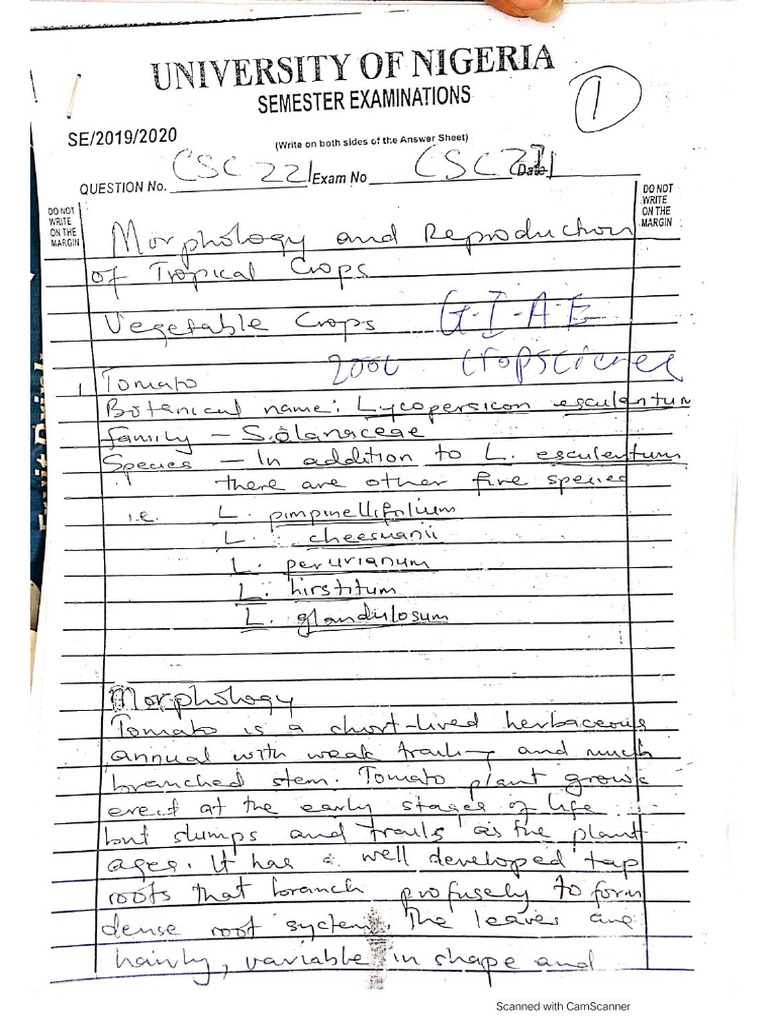 UNIVERSITY OF NIGERIA
SEMESTER EXAMINATIONS
1
SE/2019/2020
(Write on both sides of the Answer Sheet)
QUESTION No. CSC 221 Exam No CSC 221 Date
DO NOT WRITE ON THE MARGIN
DO NOT WRITE ON THE MARGIN
Morphology and Reproduction
of Tropical Crops
Vegetable Crops G-I-A-E
2000 Cropscience
1 Tomato
Botanical name: Lycopersicon esculentum
Family – Solanaceae
Species – In addition to L. esculentum
there are other five species
i.e. L. pimpinellifilium
L. cheesmanii
L. peruvianum
L. hirstitum
L. glandulosum
Morphology
Tomato is a short-lived herbaceous
annual with weak trailing and much
branched stem. Tomato plant grows
erect at the early stages of life
but slumps and trails as the plant
ages. It has a well developed tap
roots that branch profusely to form
dense root system. The leaves are
hairly, variable in shape and
Scanned with CamScanner